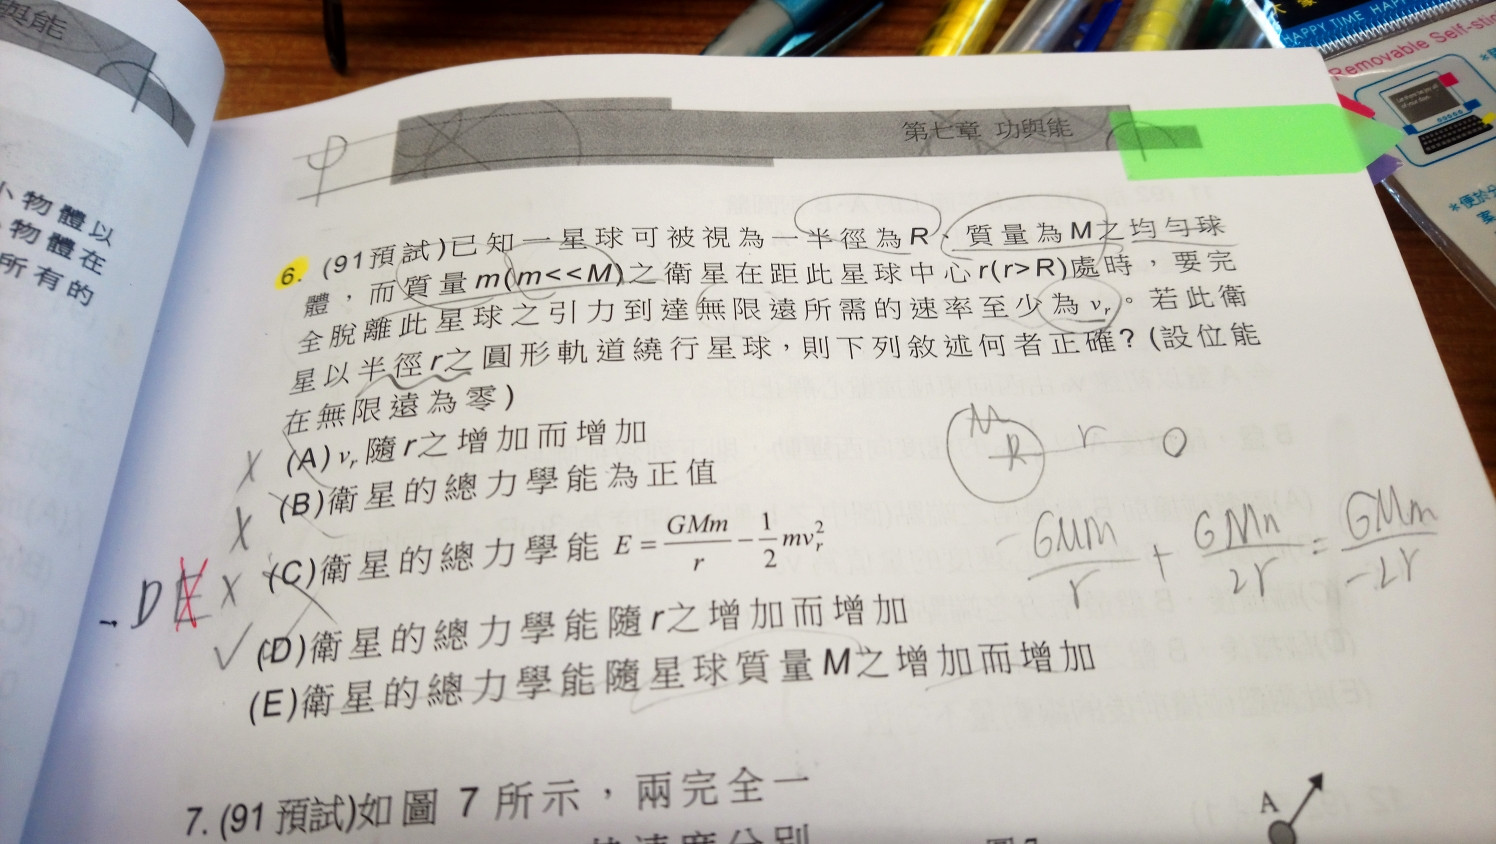 與能
小物體以
物體在
所有的
HAPPY TIME HAP
Removable Self-stic
第七章 功與能
6. (91預試)已知一星球可被視為一半徑為R、質量為M之均勻球
體，而質量m(m<<M)之衛星在距此星球中心r(r>R)處時，要完
全脫離此星球之引力到達無限遠所需的速率至少為vr。若此衛
星以半徑r之圓形軌道繞行星球，則下列敘述何者正確？(設位能
在無限遠為零)
(A)vr隨r之增加而增加
(B)衛星的總力學能為正值
(C)衛星的總力學能 E = GMm/r - 1/2 mvr²
(D)衛星的總力學能隨r之增加而增加
(E)衛星的總力學能隨星球質量M之增加而增加
X
X
X
✓
DE
M
R r
- GMm/r + GMm/2r = GMm/-2r
7. (91預試)如圖 7 所示，兩完全一
A